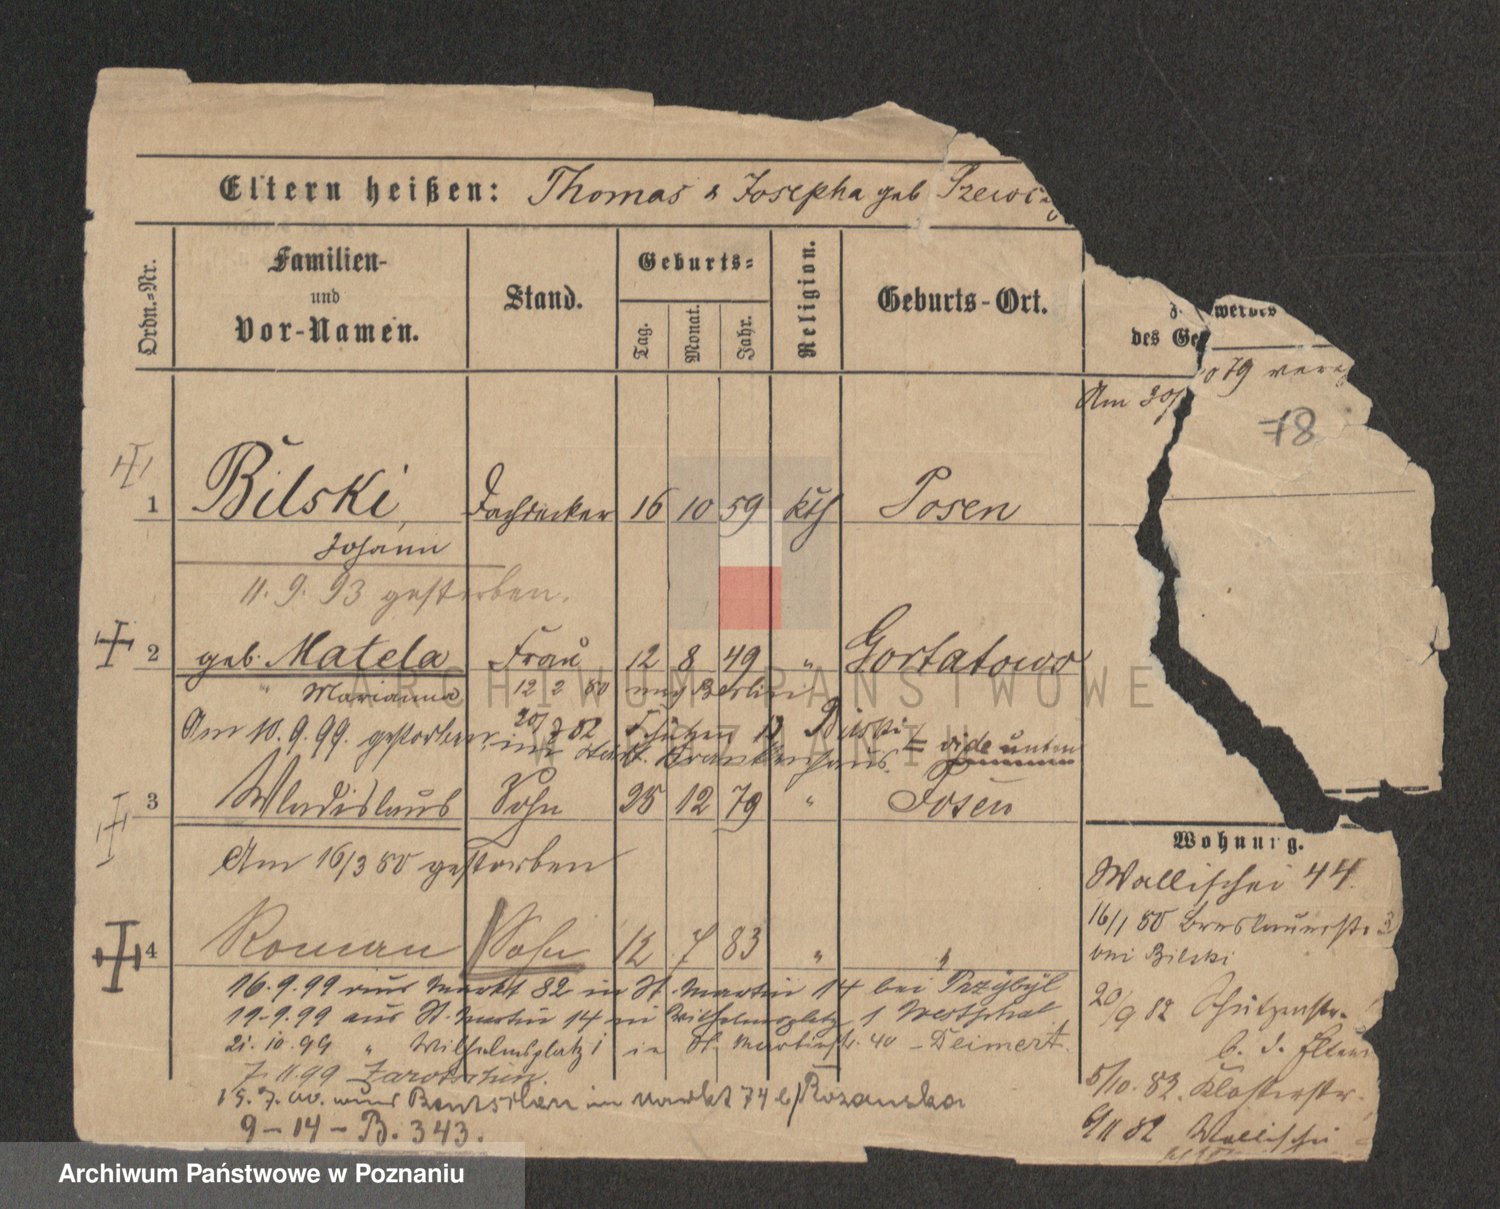 Eltern heißen: Thomas & Josepha geb
Ordn.-Nr.
Familien-
und
Vor-Namen.
Stand.
Geburts-
Tag.
Monat.
Jahr.
Religion.
Geburts-Ort.
des Ge
Am 30/
79
78
1 Bilski, Dachdecker 16 10 59 kth Posen
Johann
11. 9. 93 gestorben.
2 geb. Matela Frau 12 8 49 " Gortatowo
" Marianna 12 2 80 nach Berlin
Am 10. 9. 99. gestorben, im 20/9 82 Schützen 12 Bilski = vide unten
Krankenhaus.
3 Wladislaus Sohn 25 12 79 " Posen
Am 16/3 80 gestorben
4 Roman Sohn 12 7 83 " "
Wohnung.
Wallischei 44.
16/1 80 Breslauerstr 3
bei Bilski
20/9 82 Schützenstr.
b. d. Eltern
5/10. 82. Klosterstr.
6/11 82 Wallischei
16. 9. 99 aus Markt 82 in St. Martin 14 bei Przybyl
19. 9. 99 aus St. Martin 14 in Wilhelmsplatz 1 Westphal
21. 10. 99 " Wilhelmsplatz 1 in St. Martinstr. 40 - Deimert.
7. 11. 99 Zarotschin.
in Markt 74 b/ Rozanska
9-14-B. 343.
ARCHIWUM PAŃSTWOWE
W POZNANIU
Archiwum Państwowe w Poznaniu